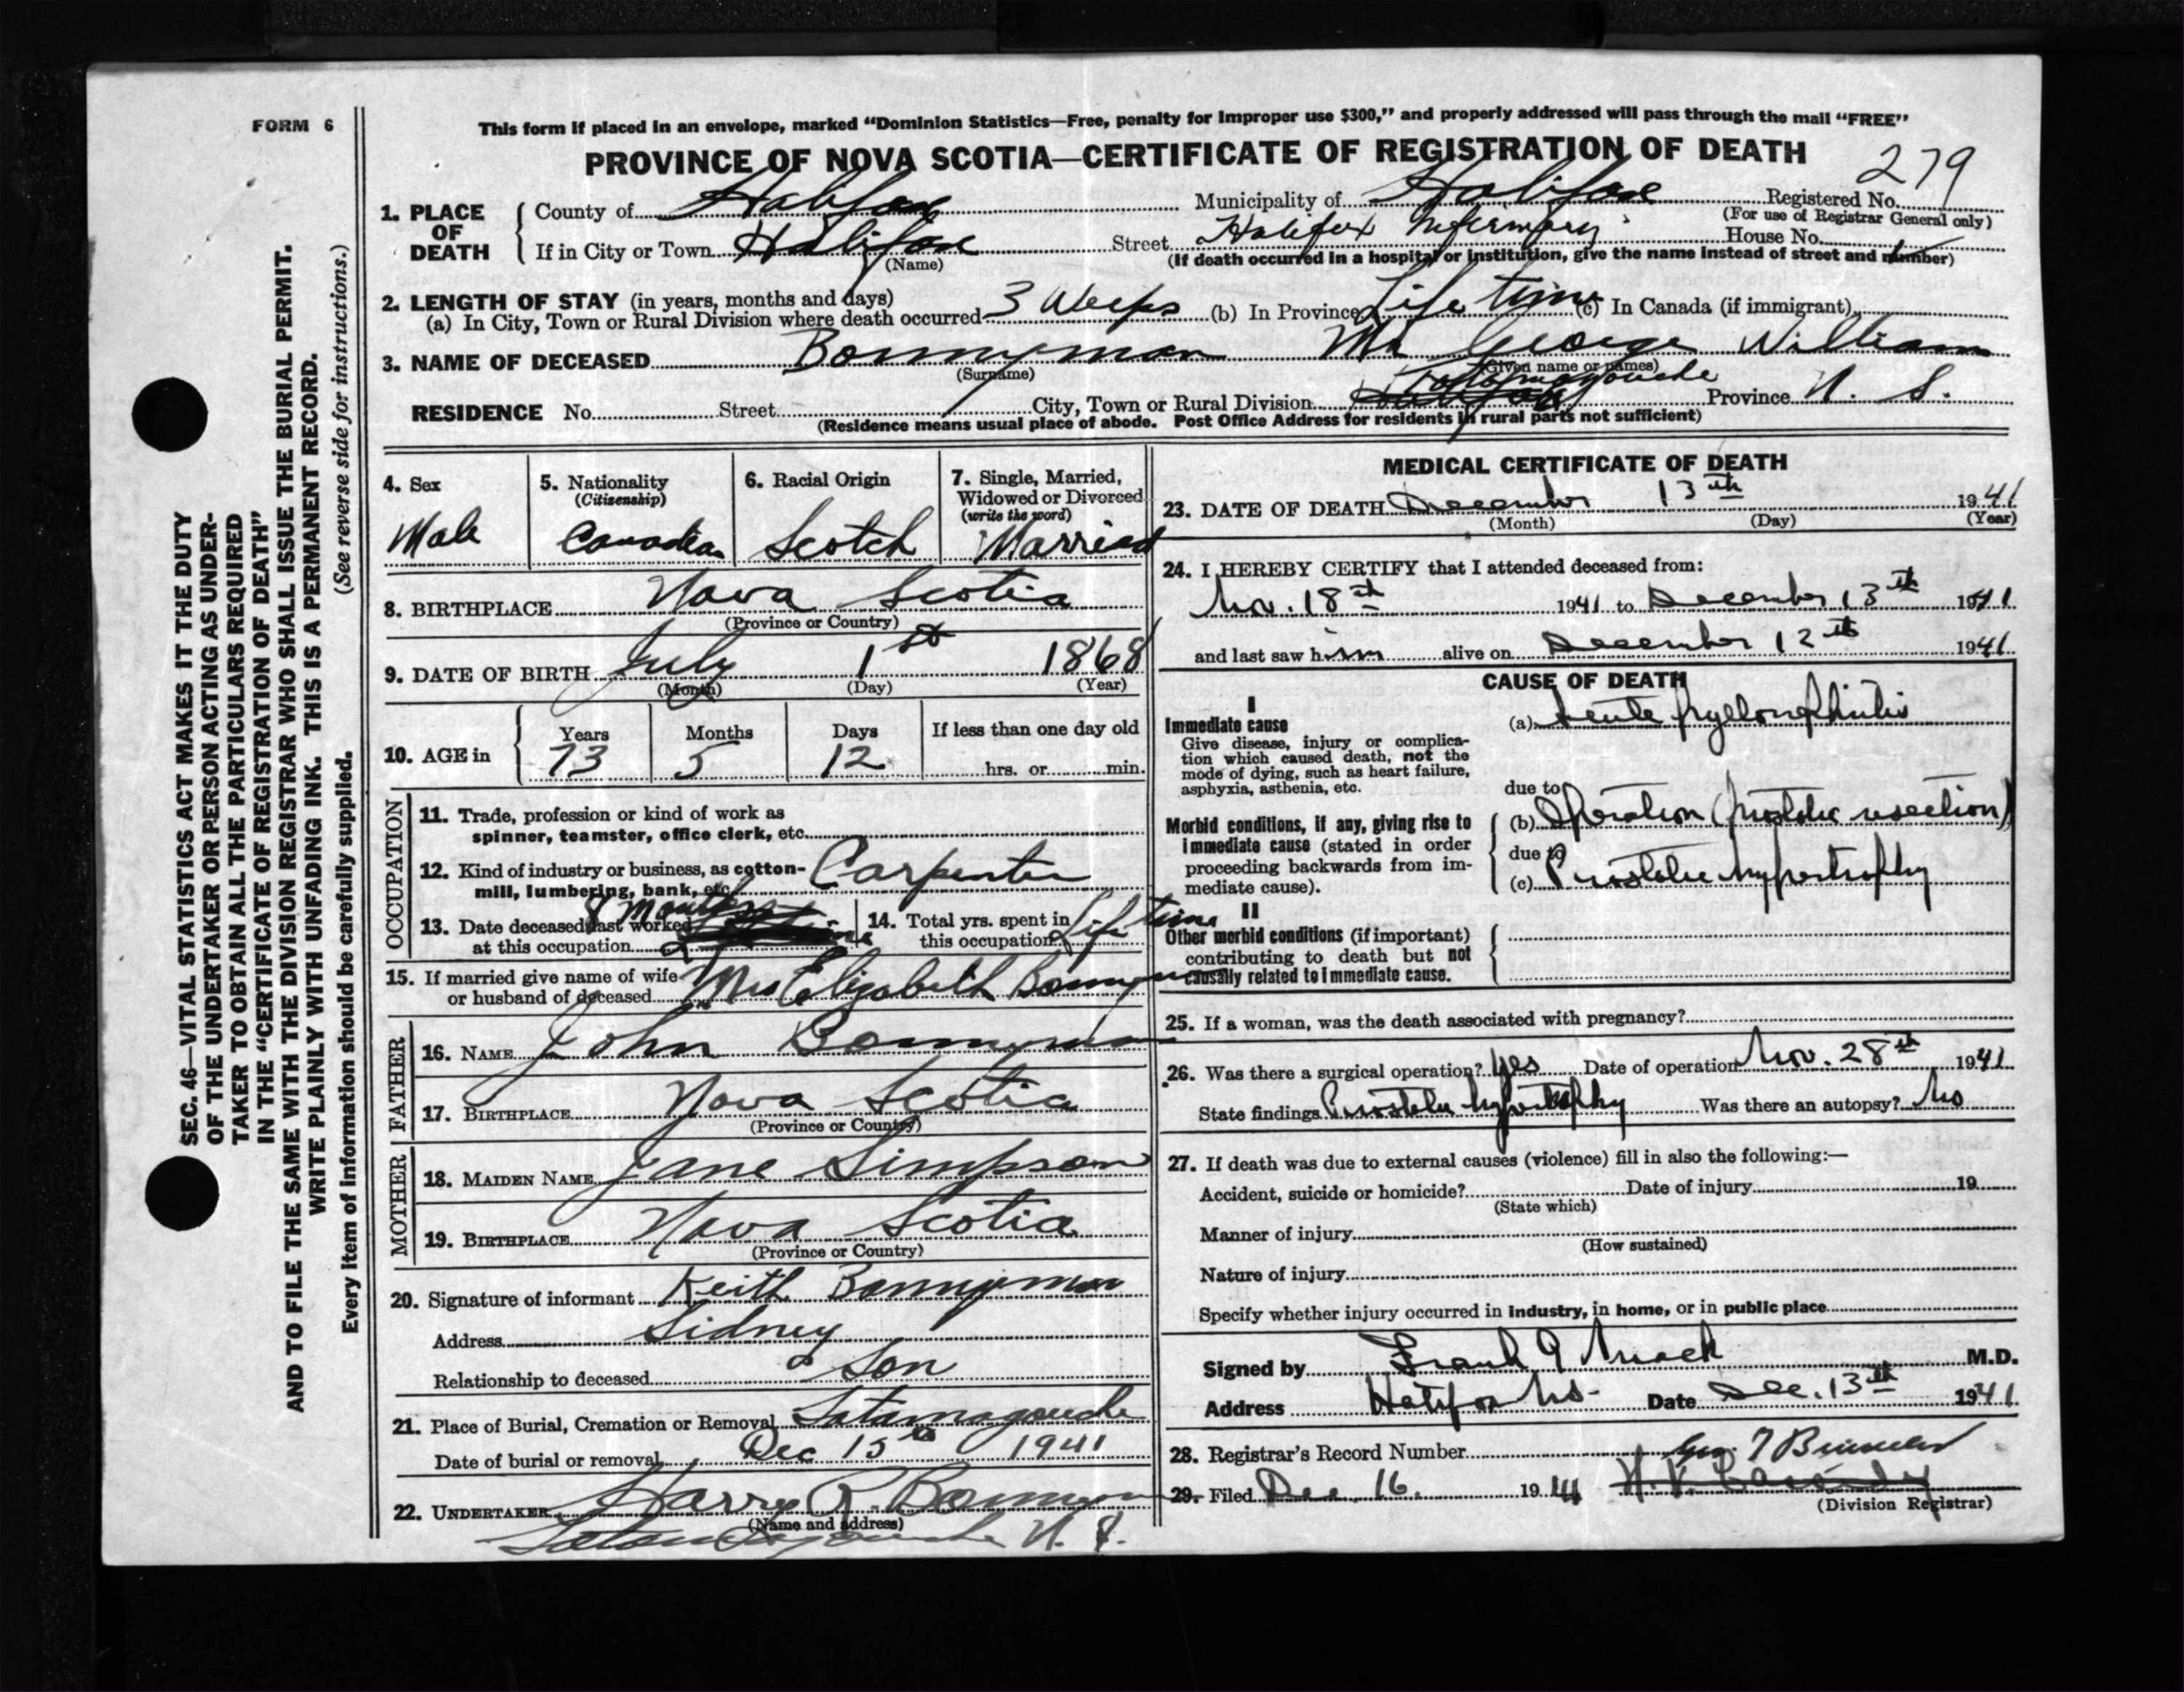 FORM 6
This form if placed in an envelope, marked "Dominion Statistics—Free, penalty for improper use $300," and properly addressed will pass through the mail "FREE"
PROVINCE OF NOVA SCOTIA—CERTIFICATE OF REGISTRATION OF DEATH
279
1. PLACE OF DEATH
County of Halifax Municipality of Halifax Registered No.
(For use of Registrar General only)
If in City or Town Halifax Street Halifax Infirmary House No.
(Name) (If death occurred in a hospital or institution, give the name instead of street and number)
2. LENGTH OF STAY (in years, months and days)
(a) In City, Town or Rural Division where death occurred 3 Weeks (b) In Province Life time (c) In Canada (if immigrant)
3. NAME OF DECEASED Bonnyman Mr George William
(Surname) (Given name or names)
RESIDENCE No. Street City, Town or Rural Division Halifax Tatamagouche Province N. S.
(Residence means usual place of abode. Post Office Address for residents in rural parts not sufficient)
4. Sex
Male
5. Nationality
(Citizenship)
Canadian
6. Racial Origin
Scotch
7. Single, Married,
Widowed or Divorced
(write the word)
Married
8. BIRTHPLACE Nova Scotia
(Province or Country)
9. DATE OF BIRTH July 1st 1868
(Month) (Day) (Year)
10. AGE in
Years Months Days If less than one day old
73 5 12 hrs. or min.
OCCUPATION
11. Trade, profession or kind of work as
spinner, teamster, office clerk, etc.
12. Kind of industry or business, as cotton-
mill, lumbering, bank, etc. Carpenter
13. Date deceased last worked
at this occupation 8 months
14. Total yrs. spent in
this occupation Life time
15. If married give name of wife
or husband of deceased Mrs Elizabeth Bonnyman
FATHER
16. NAME John Bonnyman
17. BIRTHPLACE Nova Scotia
(Province or Country)
MOTHER
18. MAIDEN NAME Jane Simpson
19. BIRTHPLACE Nova Scotia
(Province or Country)
20. Signature of informant Keith Bonnyman
Address Sidney
Relationship to deceased Son
21. Place of Burial, Cremation or Removal Tatamagouche
Date of burial or removal Dec 15th 1941
22. UNDERTAKER Harry R. Bonnyman
(Name and address)
Tatamagouche N. S.
MEDICAL CERTIFICATE OF DEATH
23. DATE OF DEATH December 13th 1941
(Month) (Day) (Year)
24. I HEREBY CERTIFY that I attended deceased from:
Nov. 18th 1941 to December 13th 1941
and last saw him alive on December 12th 1941
CAUSE OF DEATH
I
Immediate cause
Give disease, injury or complica-
tion which caused death, not the
mode of dying, such as heart failure,
asphyxia, asthenia, etc.
(a) Acute pyelonephritis
due to
Morbid conditions, if any, giving rise to
immediate cause (stated in order
proceeding backwards from im-
mediate cause).
(b) Operation (prostatic resection)
due to
(c) Prostatic hypertrophy
II
Other morbid conditions (if important)
contributing to death but not
causally related to immediate cause.
25. If a woman, was the death associated with pregnancy?
26. Was there a surgical operation? Yes Date of operation Nov. 28th 1941
State findings Prostatic hypertrophy Was there an autopsy? No
27. If death was due to external causes (violence) fill in also the following:—
Accident, suicide or homicide? Date of injury 19
(State which)
Manner of injury
(How sustained)
Nature of injury
Specify whether injury occurred in industry, in home, or in public place
Signed by Frank G Mack M.D.
Address Halifax NS- Date Dec. 13th 1941
28. Registrar's Record Number
29. Filed Dec. 16. 1941
(Division Registrar)
SEC. 46—VITAL STATISTICS ACT MAKES IT THE DUTY
OF THE UNDERTAKER OR PERSON ACTING AS UNDER-
TAKER TO OBTAIN ALL THE PARTICULARS REQUIRED
IN THE "CERTIFICATE OF REGISTRATION OF DEATH"
AND TO FILE THE SAME WITH THE DIVISION REGISTRAR WHO SHALL ISSUE THE BURIAL PERMIT.
WRITE PLAINLY WITH UNFADING INK. THIS IS A PERMANENT RECORD.
Every item of information should be carefully supplied. (See reverse side for instructions.)